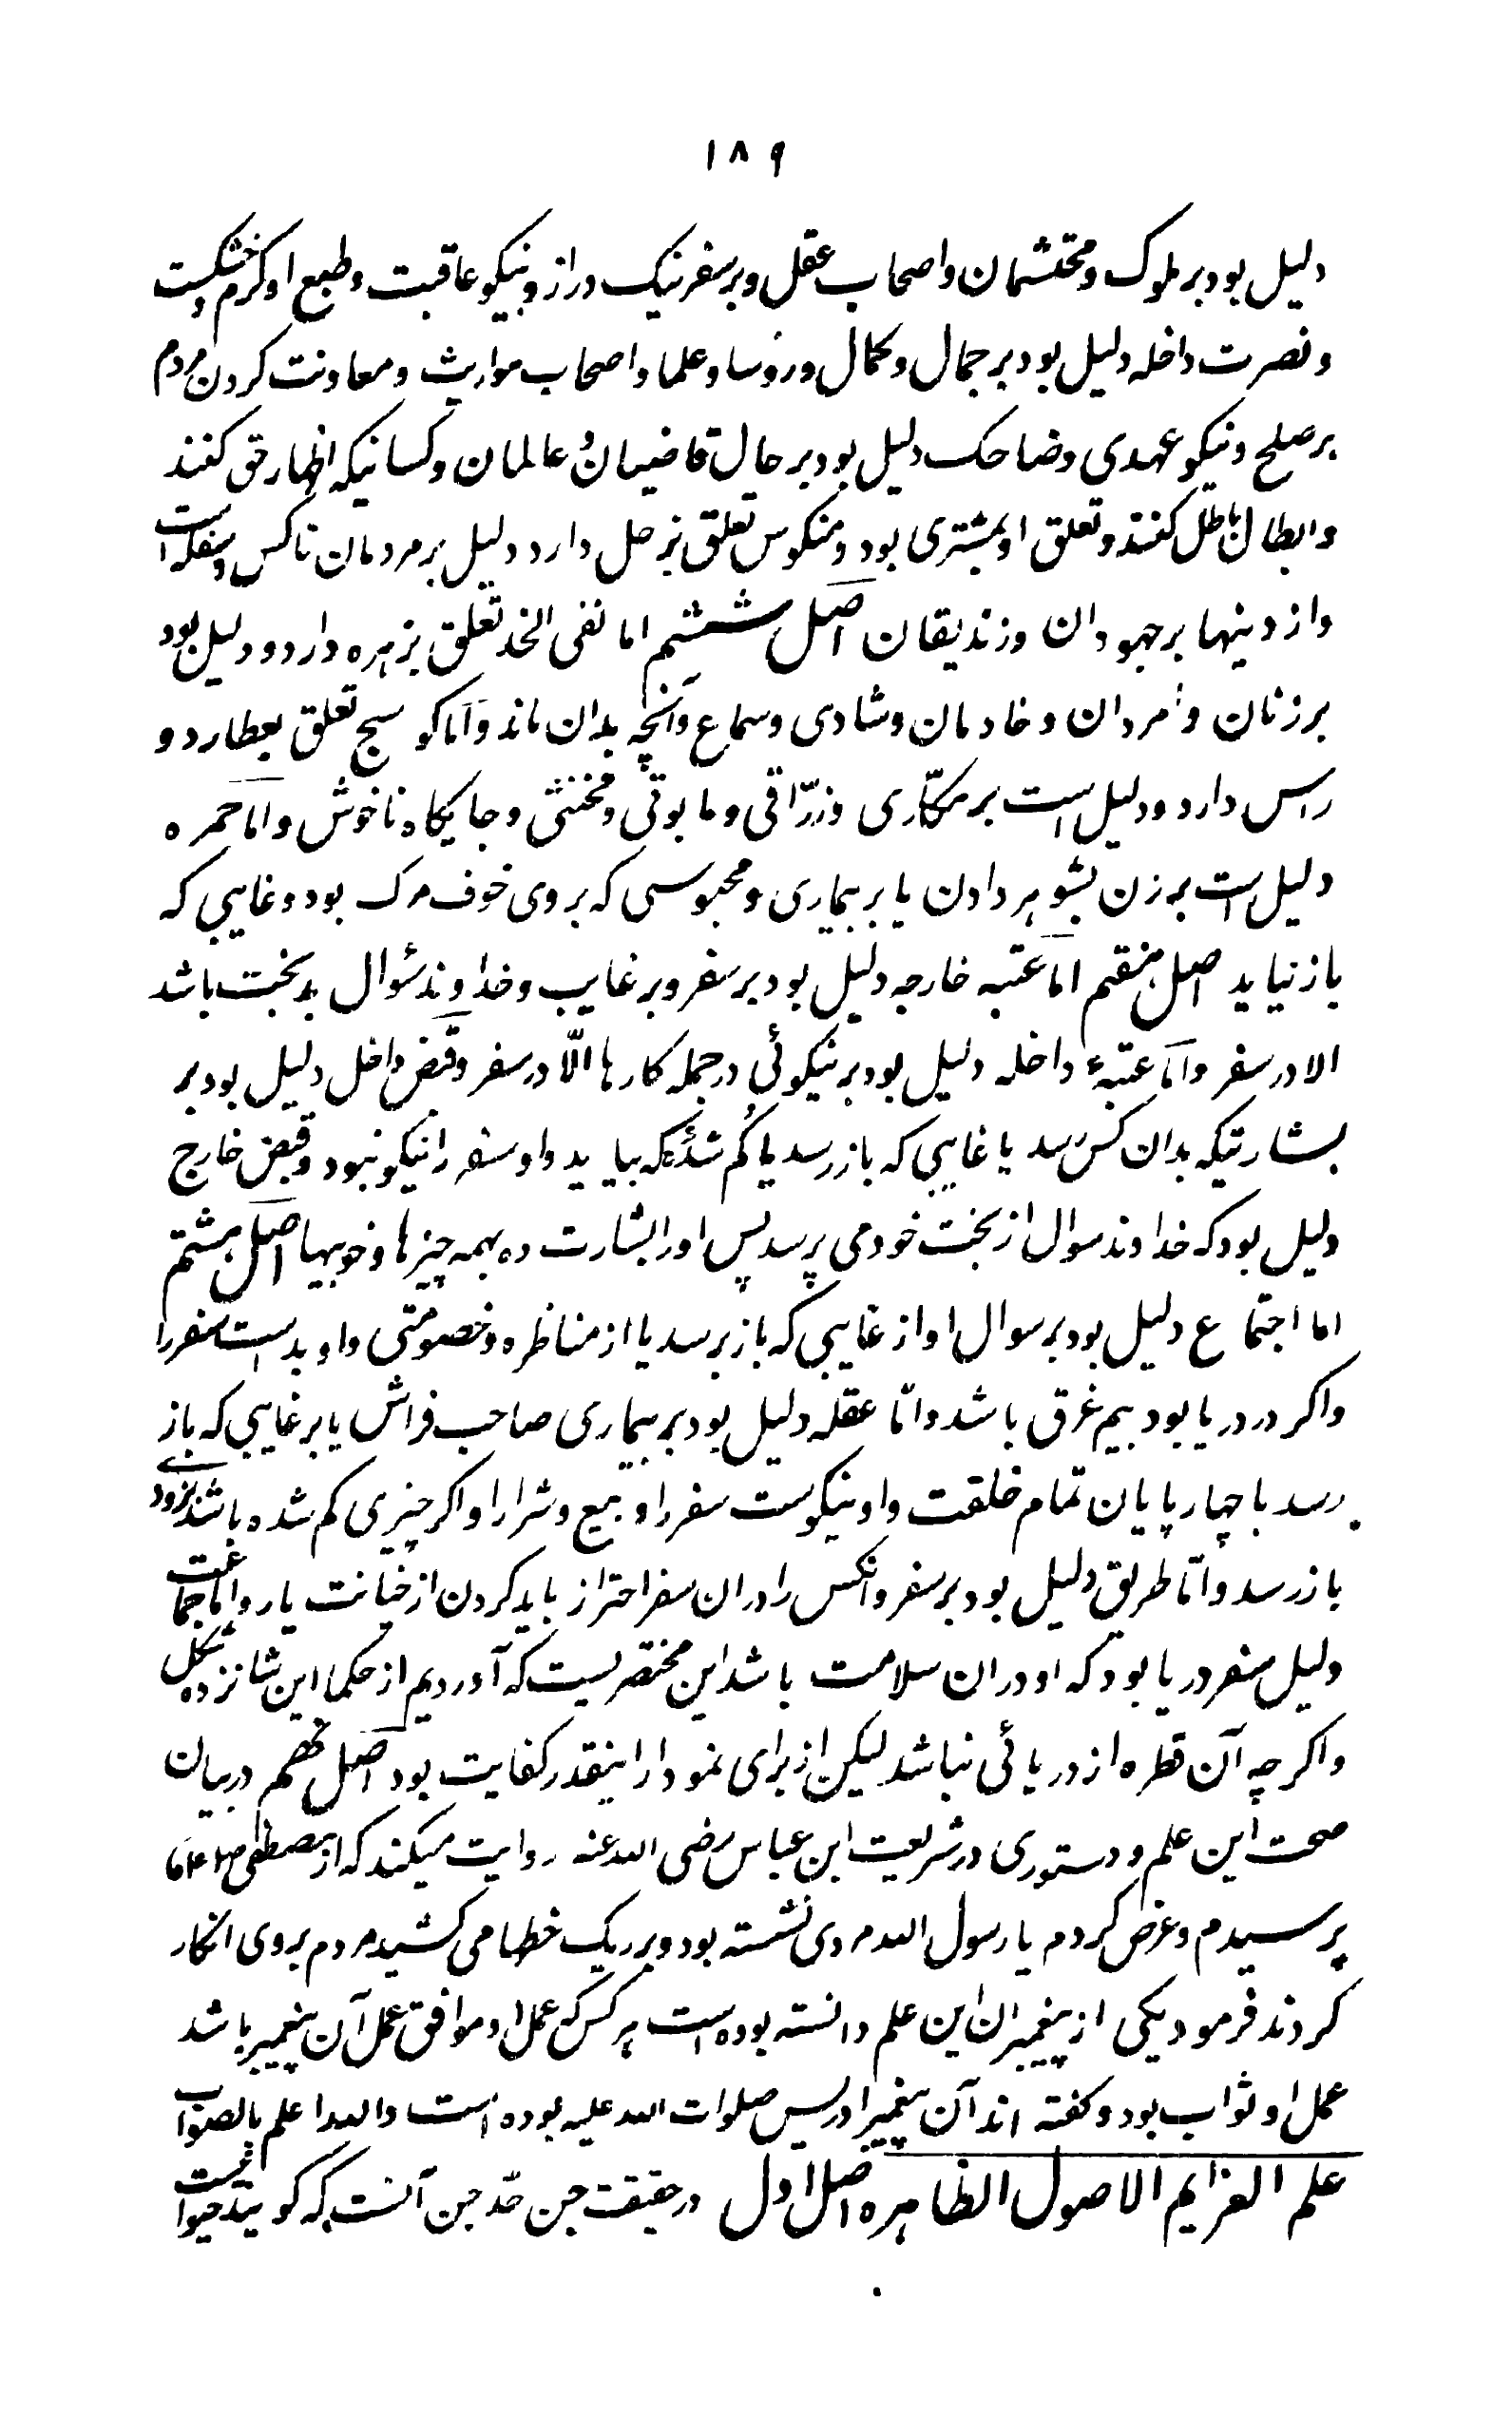 ۱۸۹
دلیل بود بر ملوک و محتشمان و اصحاب عقل و بر سفر نیک دراز و نیکو عاقبت و طبع او کرم و خشکست
و نصرت داخله دلیل بود بر جمال و کمال و رؤسا و علما و اصحاب مواریث و معاونت کردن مردم
بر صلح و نیکو عهدی و ضاحک دلیل بود بر حال قاضیان و عالمان و کسانیکه اظهار حق کنند
و ابطال باطل کنند و تعلق او بمشتری بود و منکوس تعلق بزحل دارد دلیل بر مردمان ناکس و سفله است
و از دینها بر جهودان و زندیقان اصل ششم اما نقی الخد تعلق بزهره دارد و دلیل بود
بر زنان و امردان و خادمان و شادی و سماع و آنچه بدان ماند و اما کوسج تعلق بعطارد و
راس دارد و دلیل است بر مکّاری و زرّاقی و مابونی و مخنثی و جایکاه ناخوش و اما حمره
دلیل است بر زن بشوهر دادن یا بر بیماری و محبوسی که بر وی خوف مرک بود و غایبی که
باز نیاید اصل هفتم اما عتبه خارجه دلیل بود بر سفر و بر غایب و خداوند سئوال بدبخت باشد
الا در سفر و اما عتبهٔ داخله دلیل بود بر نیکوئی در جمله کارها الّا در سفر و قبض داخل دلیل بود بر
بشارتیکه بدان کس رسد یا غایبی که باز رسد یا کم شدهٔ که بیاید و او سفر را نیکو نبود و قبض خارج
دلیل بود که خداوند سوال از بخت خود می پرسد پس او را بشارت ده بهمه چیزها و خوبیها اصل هشتم
اما اجتماع دلیل بود بر سوال او از غایبی که باز برسد یا از مناظره و خصومتی و او بد است سفر را
و اکر در دریا بود بیم غرق باشد و امّا عقله دلیل بود بر بیماری صاحب فراش یا بر غایبی که باز
رسد با چهار پایان تمام خلقت و او نیکوست سفر را و بیع و شرا را و اکر چیزی کم شده باشد بزودی
باز رسد و امّا طریق دلیل بود بر سفر و انکس را در ان سفر احتراز باید کردن از خیانت یار و اما جماعت
دلیل سفر دریا بود که او در ان سلامت باشد این مختصریست که آوردیم از حکما این شانزده شکل
و اکر چه آن قطره از دریائی نباشد لیکن از برای نمودار اینقدر کفایت بود اصل نهم در بیان
صحت این علم و دستوری در شریعت ابن عباس رضی الله عنه روایت میکند که از مصطفی
پرسیدم و عرض کردم یا رسول الله مردی نشسته بود و بر ریک خطها می کشید مردم بر وی انکار
کردند فرمود یکی از پیغمبران این علم دانسته بوده است هر کس که عمل او موافق عمل آن پیغمبر باشد
عمل او ثواب بود و کفته اند آن پیغمبر ادریس صلوات الله علیه بوده است و الله اعلم بالصواب
علم العزایم الاصول الظاهره اصل اول در حقیقت جن حدّ جن آنست که کویند حیوانیست